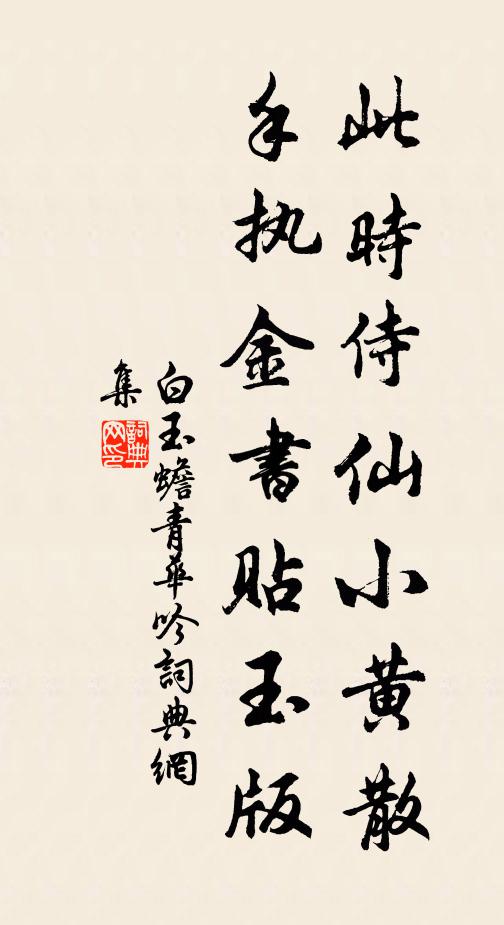 此時侍仙小黄散
手执金書貼玉版
白玉蟾青華吟詞典網
集
詞典
网印